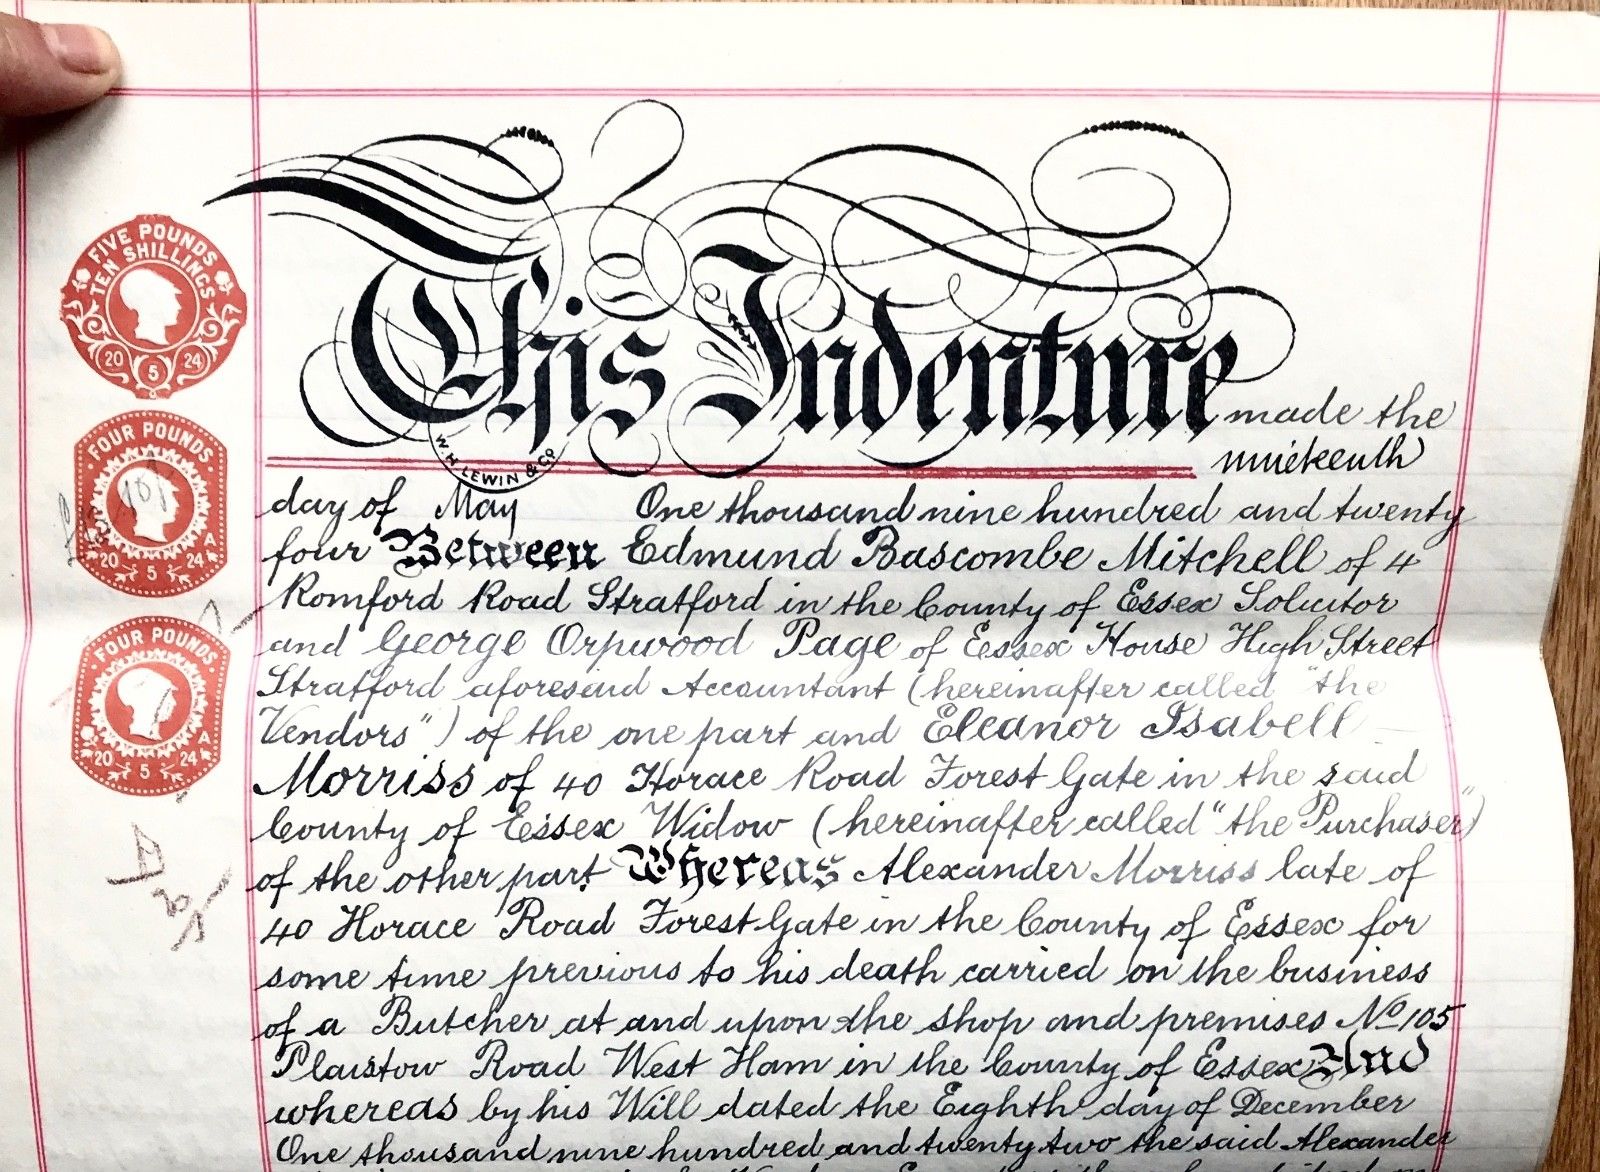 FIVE POUNDS
TEN SHILLINGS
20 5 24
FOUR POUNDS
A
20 5 24
FOUR POUNDS
A
20 5 24
This Indenture made the
W. H. LEWIN & Co
nineteenth
day of May One thousand nine hundred and twenty
four Between Edmund Bascombe Mitchell of 4
Romford Road Stratford in the County of Essex Solicitor
and George Orpwood Page of Essex House High Street
Stratford aforesaid Accountant (hereinafter called "the
Vendors") of the one part and Eleanor Isabell
Morriss of 40 Horace Road Forest Gate in the said
County of Essex Widow (hereinafter called "the Purchaser")
of the other part Whereas Alexander Morriss late of
40 Horace Road Forest Gate in the County of Essex for
some time previous to his death carried on the business
of a Butcher at and upon the shop and premises No 105
Plaistow Road West Ham in the County of Essex And
whereas by his Will dated the Eighth day of December
One thousand nine hundred and twenty two the said Alexander